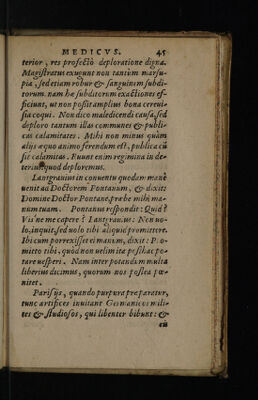 MEDICVS. 45
terior, res profectò deploratione digna.
Magistratus exugunt non tantùm marsu-
pia, sed etiam robur & sanguinem subdi-
torum. nam hæ subditorum exactiones ef-
ficiunt, ut non possit amplius bona cerevi-
sia coqui. Non dico maledicendi causa, sed
deploro tantum illas communes & publi-
cas calamitates. Mihi non minus quàm
alijs æquo animo ferendum est, publica cũ
sit calamitas. Ruunt enim regimina in de-
terius, quod deploremus.
Lantgrauius in conuentu quodam manè
uenit ad Doctorem Pontanum, & dixit:
Domine Doctor Pontane, præbe mihi ma-
num tuam. Pontanus respondit: Quid?
Vis'ne me capere? Lantgrauius: Non uo-
lo, inquit, sed uolo tibi aliquid promittere.
Ibi cum porrexisset ei manum, dixit: Pro-
mitto tibi, quòd non uelim ita posthac po-
tare uesperi. Nam inter potandum multa
liberius dicimus, quorum nos postea pœ-
nitet.
Parisijs, quando purpura præparatur,
tunc artifices inuitant Germanicos mili-
tes & studiosos, qui libenter bibunt: &